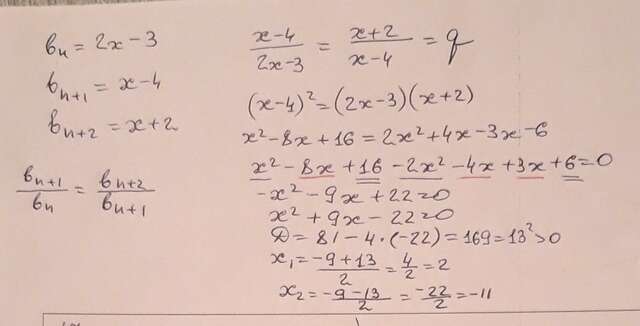 bₙ = 2x - 3
bₙ₊₁ = x - 4
bₙ₊₂ = x + 2
bₙ₊₁/bₙ = bₙ₊₂/bₙ₊₁
(x-4)/(2x-3) = (x+2)/(x-4) = q
(x-4)² = (2x-3)(x+2)
x² - 8x + 16 = 2x² + 4x - 3x - 6
x² - 8x + 16 - 2x² - 4x + 3x + 6 = 0
-x² - 9x + 22 = 0
x² + 9x - 22 = 0
D = 81 - 4·(-22) = 169 = 13² > 0
x₁ = (-9+13)/2 = 4/2 = 2
x₂ = (-9-13)/2 = -22/2 = -11